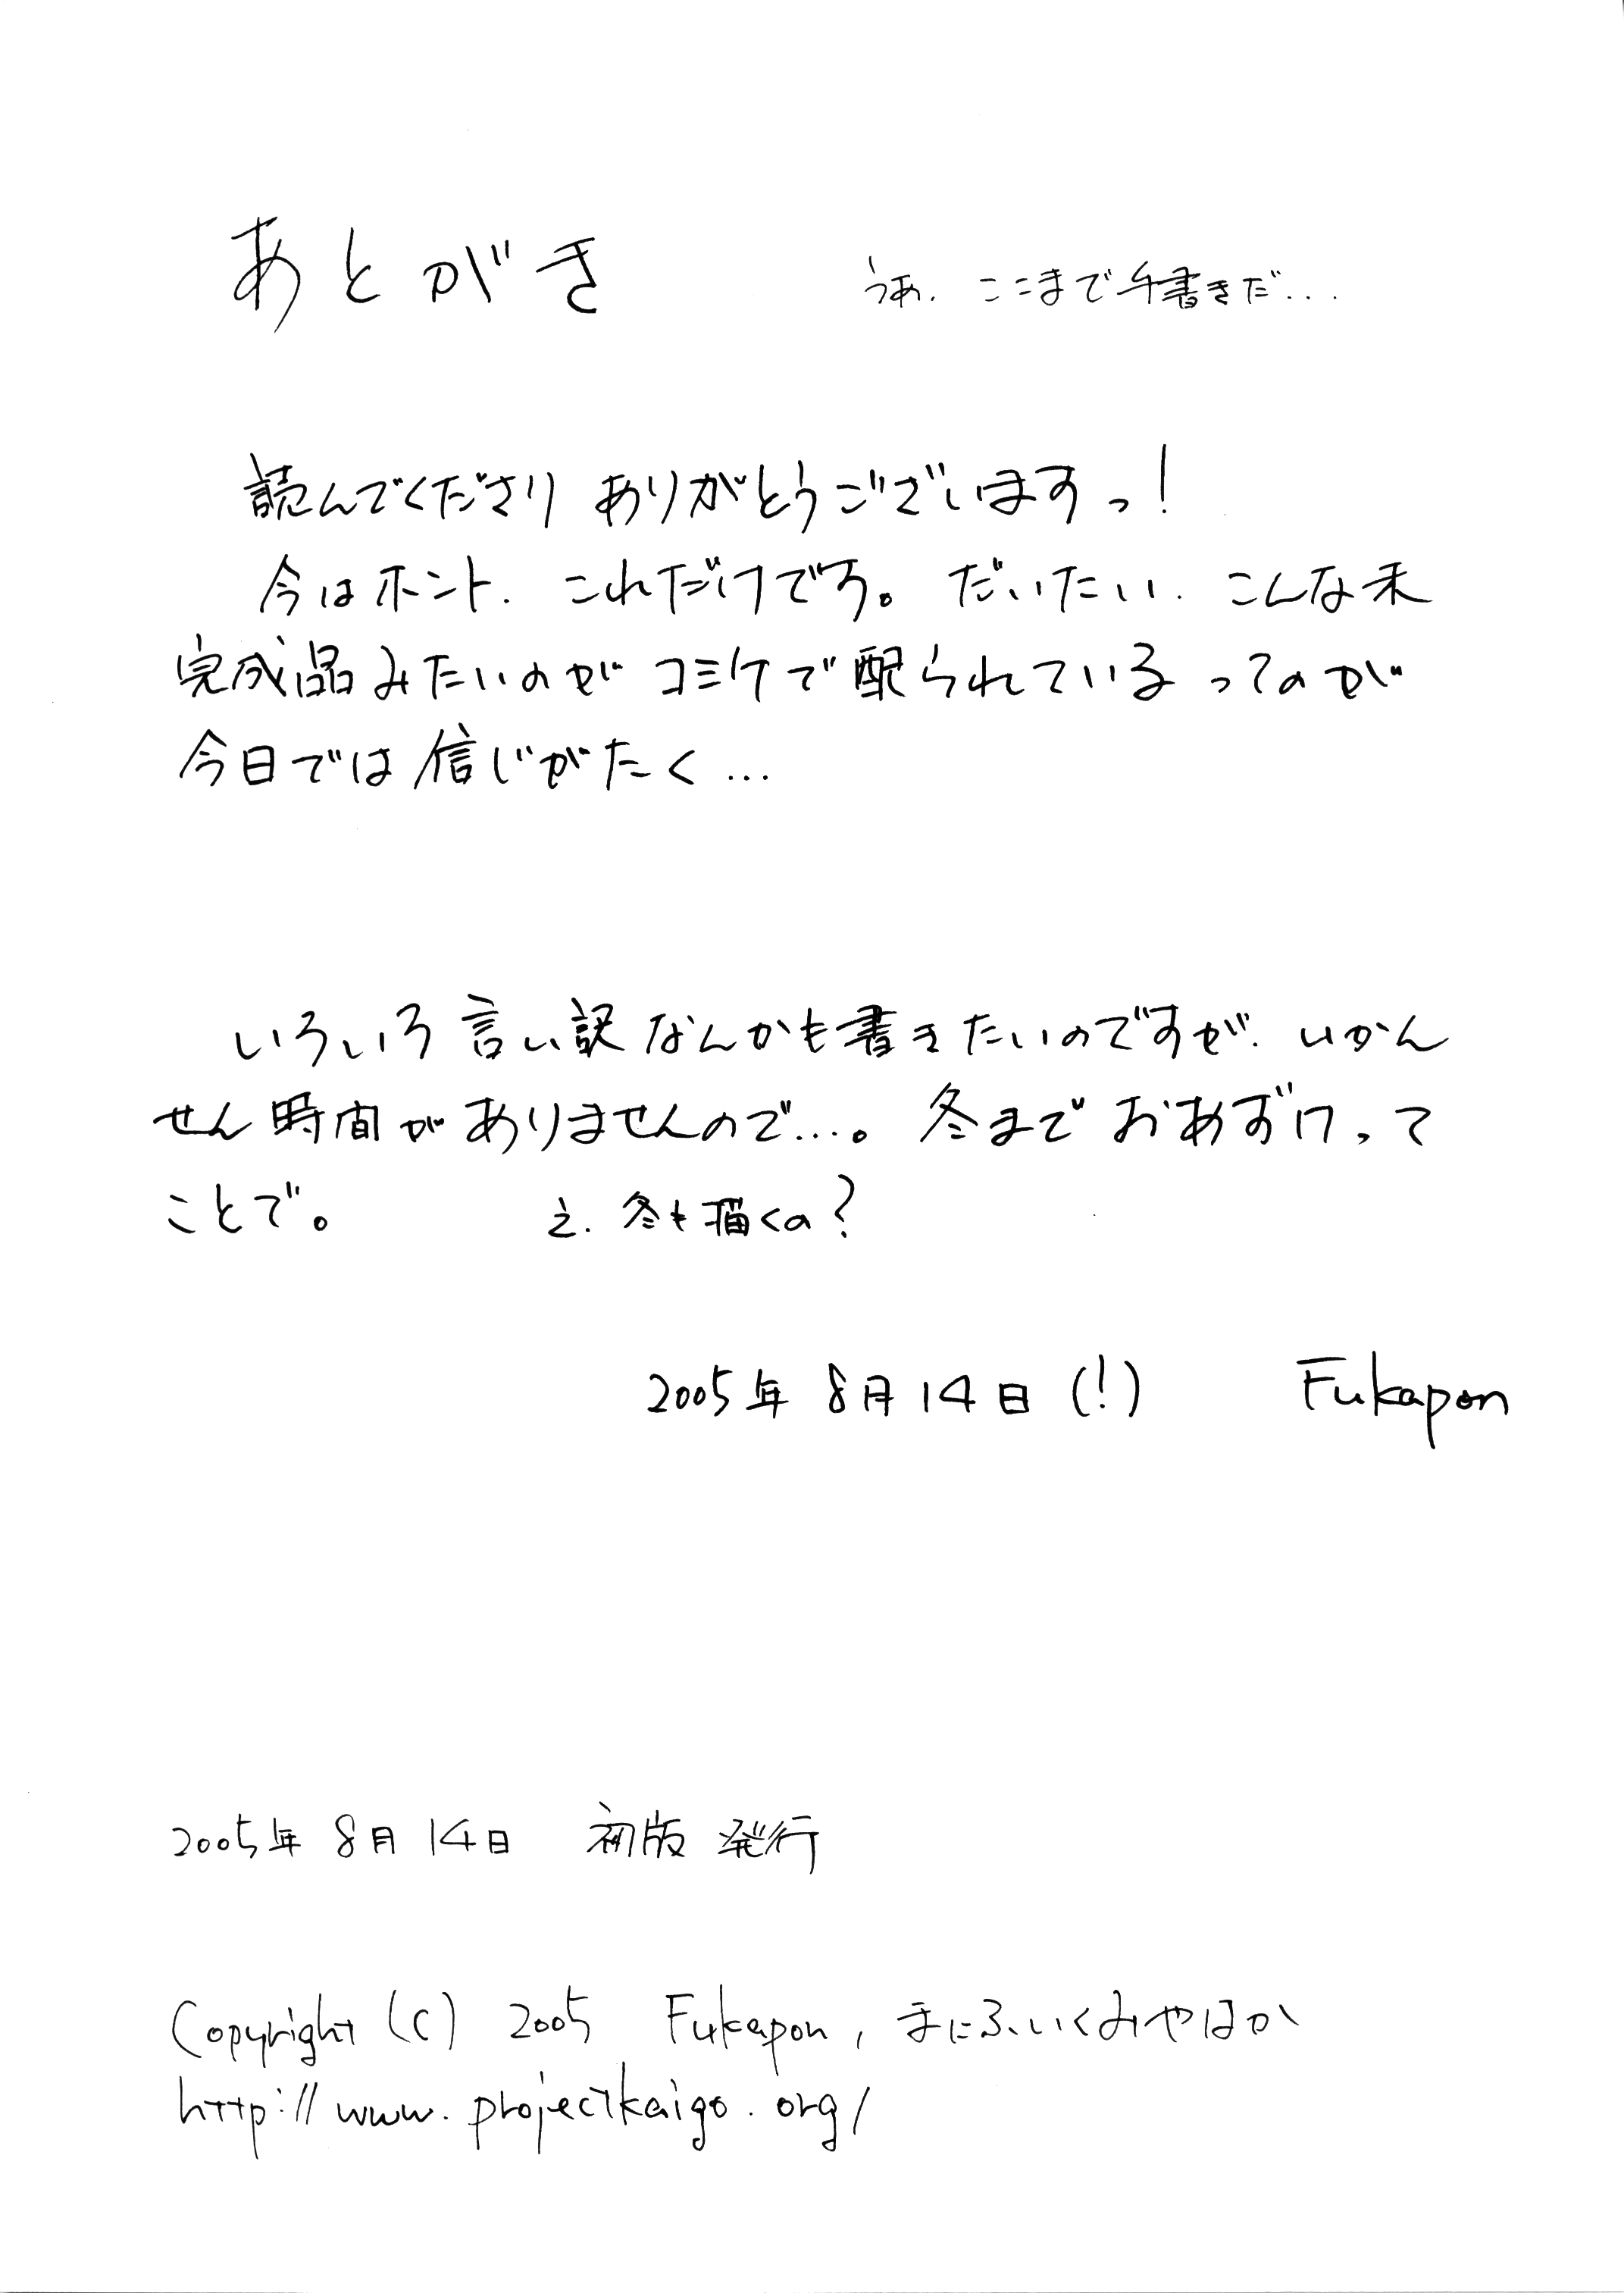 あとがき
うあ、ここまで手書きだ...
読んでくださり ありがとうございますっ!
今はホント、これだけです。だいたい、こんな未
完成品みたいのが コミケで配られているってのが
今日では信じがたく...
いろいろ言い訳なんかも書きたいのですが、いかん
せん時間がありませんので...。冬までおあずけって
ことで。
え、冬も描くの?
2005年 8月 14日 (!) Fukapon
2005年 8月 14日 初版 発行
Copyright (C) 2005 Fukapon, まにふぃくみやほか
http://www.projectkaigo.org/